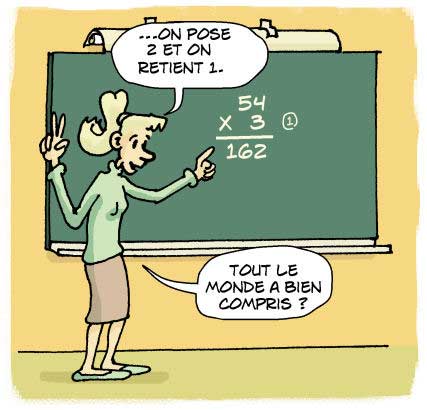 ...ON POSE
2 ET ON
RETIENT 1.
54
x 3 ①
162
TOUT LE
MONDE A BIEN
COMPRIS ?